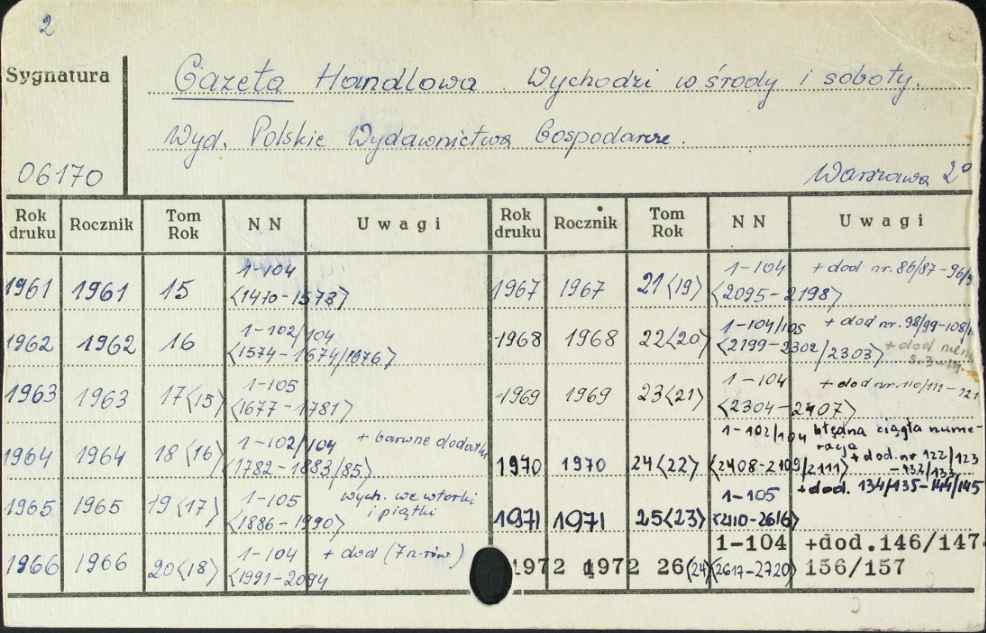 2
Sygnatura
Gazeta Handlowa. Wychodzi w środy i soboty.
Wyd. Polskie Wydawnictwa Gospodarcze.
06170
Warszawa 2°
Rok druku Rocznik Tom Rok NN Uwagi
1961 1961 15 1-104 <1470-1573>
1962 1962 16 1-102/104 <1574-1674/1676>
1963 1963 17<15> 1-105 <1677-1781>
1964 1964 18<16> 1-102/104 <1782-1883/85> + barwne dodatki
1965 1965 19<17> 1-105 <1886-1990> wych. we wtorki i piątki
1966 1966 20<18> 1-104 <1991-2094 + dod (7 n-rów)
Rok druku Rocznik Tom Rok NN Uwagi
1967 1967 21<19> 1-104 <2095-2198> + dod nr. 86/87-96/
1968 1968 22<20> 1-104/105 <2199-2302/2303> + dod nr. 98/99-108/ + dod
1969 1969 23<21> 1-104 <2304-2407> + dod nr. 110/111-121
1970 1970 24<22> 1-102/104 <2408-2109/2111> błędna ciągła numeracja + dod. nr 122/123-132/133
1971 1971 25<23> 1-105 <2110-2616> + dod. 134/135-144/145
1972 1972 26<24> 1-104 <2617-2720> +dod.146/147 156/157